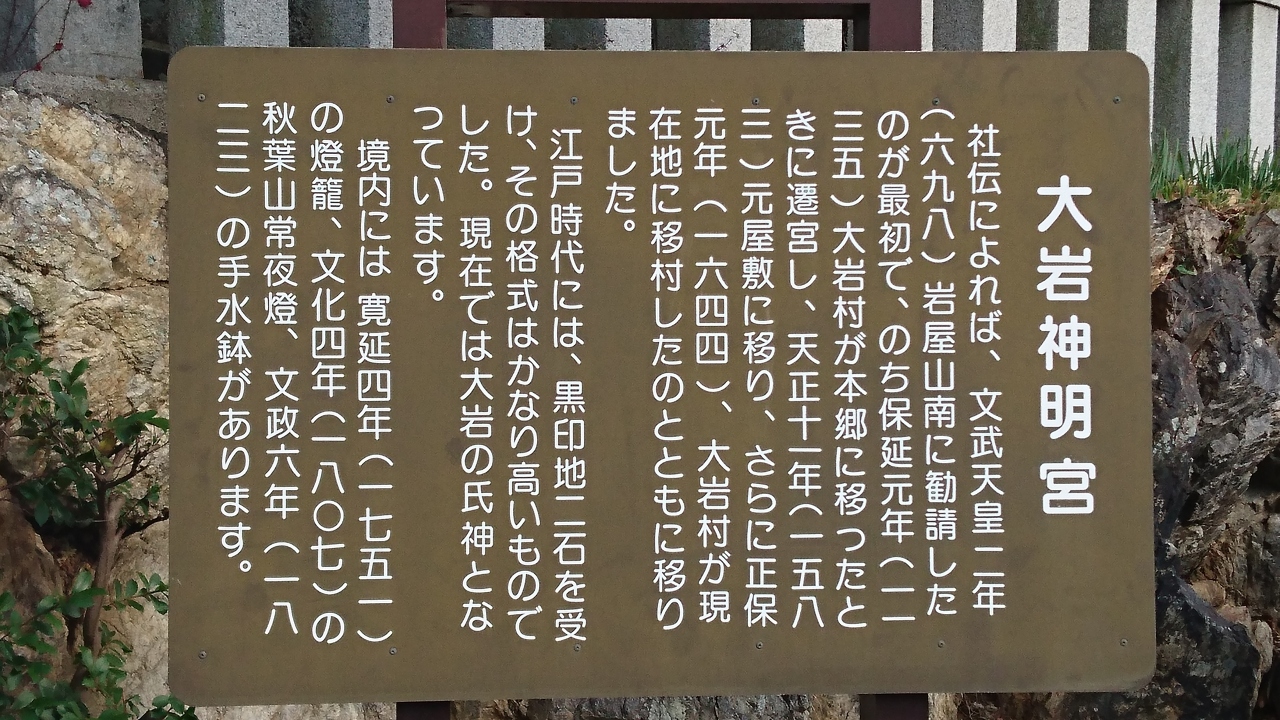 大岩神明宮
社伝によれば、文武天皇二年
（六九八）岩屋山南に勧請した
のが最初で、のち保延元年（一一
三五）大岩村が本郷に移ったと
きに遷宮し、天正十一年（一五八
三）元屋敷に移り、さらに正保
元年（一六四四）、大岩村が現
在地に移村したのとともに移り
ました。
江戸時代には、黒印地二石を受
け、その格式はかなり高いもので
した。現在では大岩の氏神とな
っています。
境内には寛延四年（一七五一）
の燈籠、文化四年（一八〇七）の
秋葉山常夜燈、文政六年（一八
二三）の手水鉢があります。